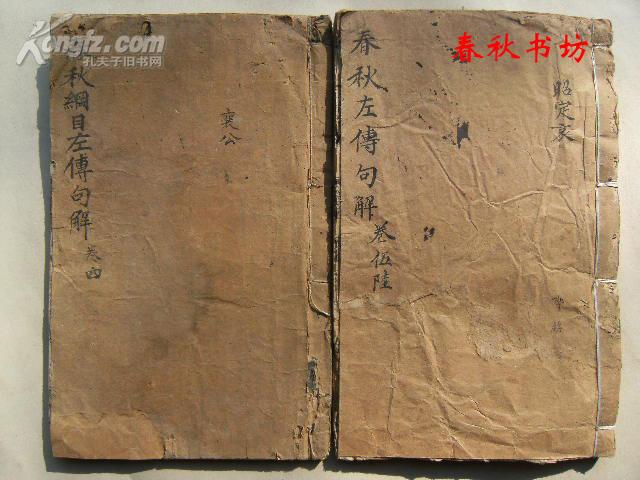 Kongfz.com
孔夫子旧书网
春秋书坊
春秋左傳句解
卷伍陸
昭定哀
秋綱目左傳句解
卷四
襄公